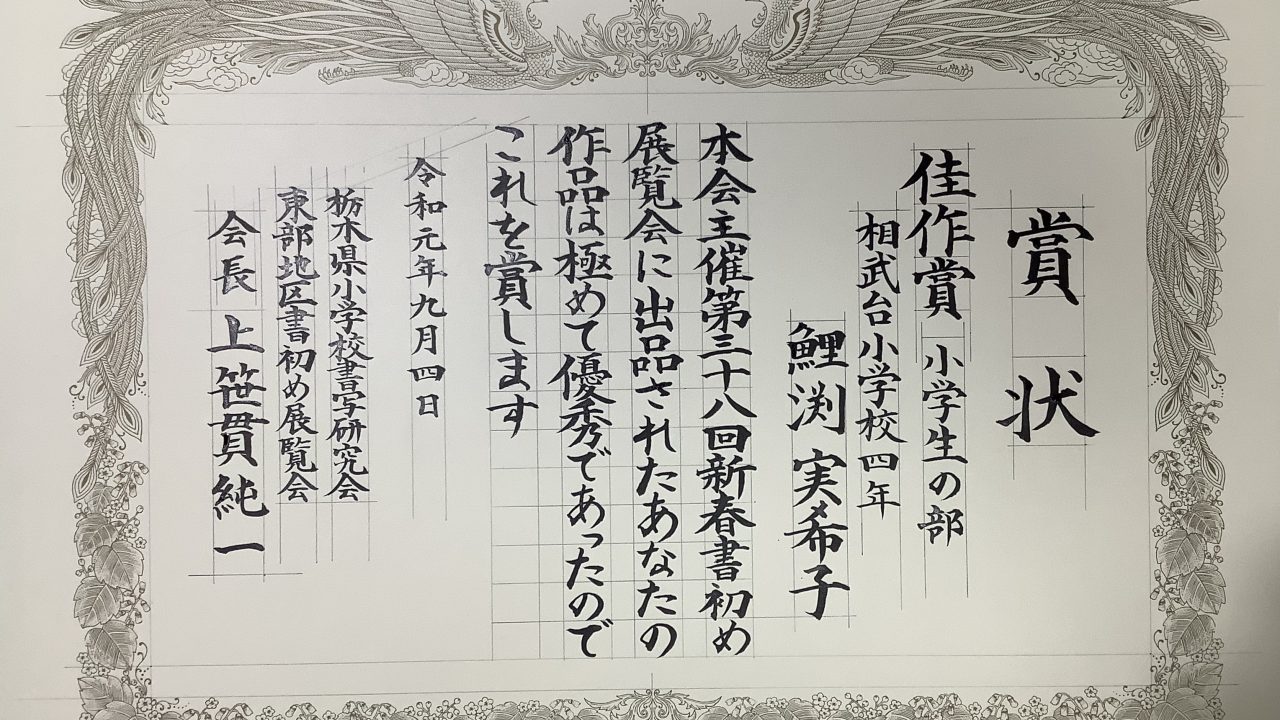 賞状
佳作賞 小学生の部
相武台小学校四年
鯉渕実希子
本会主催第三十八回新春書初め
展覧会に出品されたあなたの
作品は極めて優秀であったので
これを賞します
令和元年九月四日
栃木県小学校書写研究会
東部地区書初め展覧会
会長 上笹貫純一